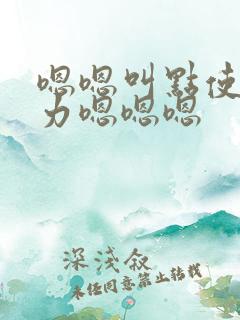 嗯嗯叫點使
力嗯嗯嗯
深淺叙
未经同意禁止转载